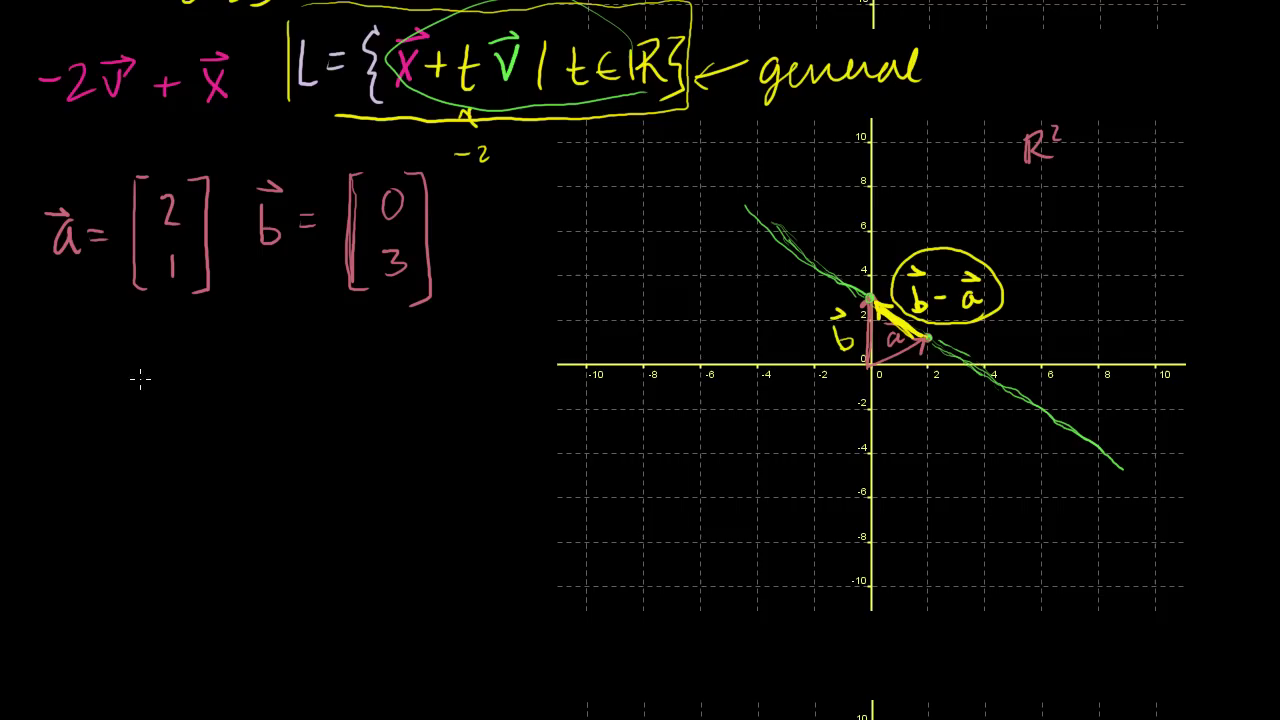 -2v⃗ + x⃗
L = { x⃗ + t v⃗ | t ∈ ℝ } ← general
-2
a⃗ = [2 1] b⃗ = [0 3]
R²
b⃗ - a⃗
b⃗
a⃗
10
8
6
4
2
0
-2
-4
-6
-8
-10
-10 -8 -6 -4 -2 0 2 4 6 8 10